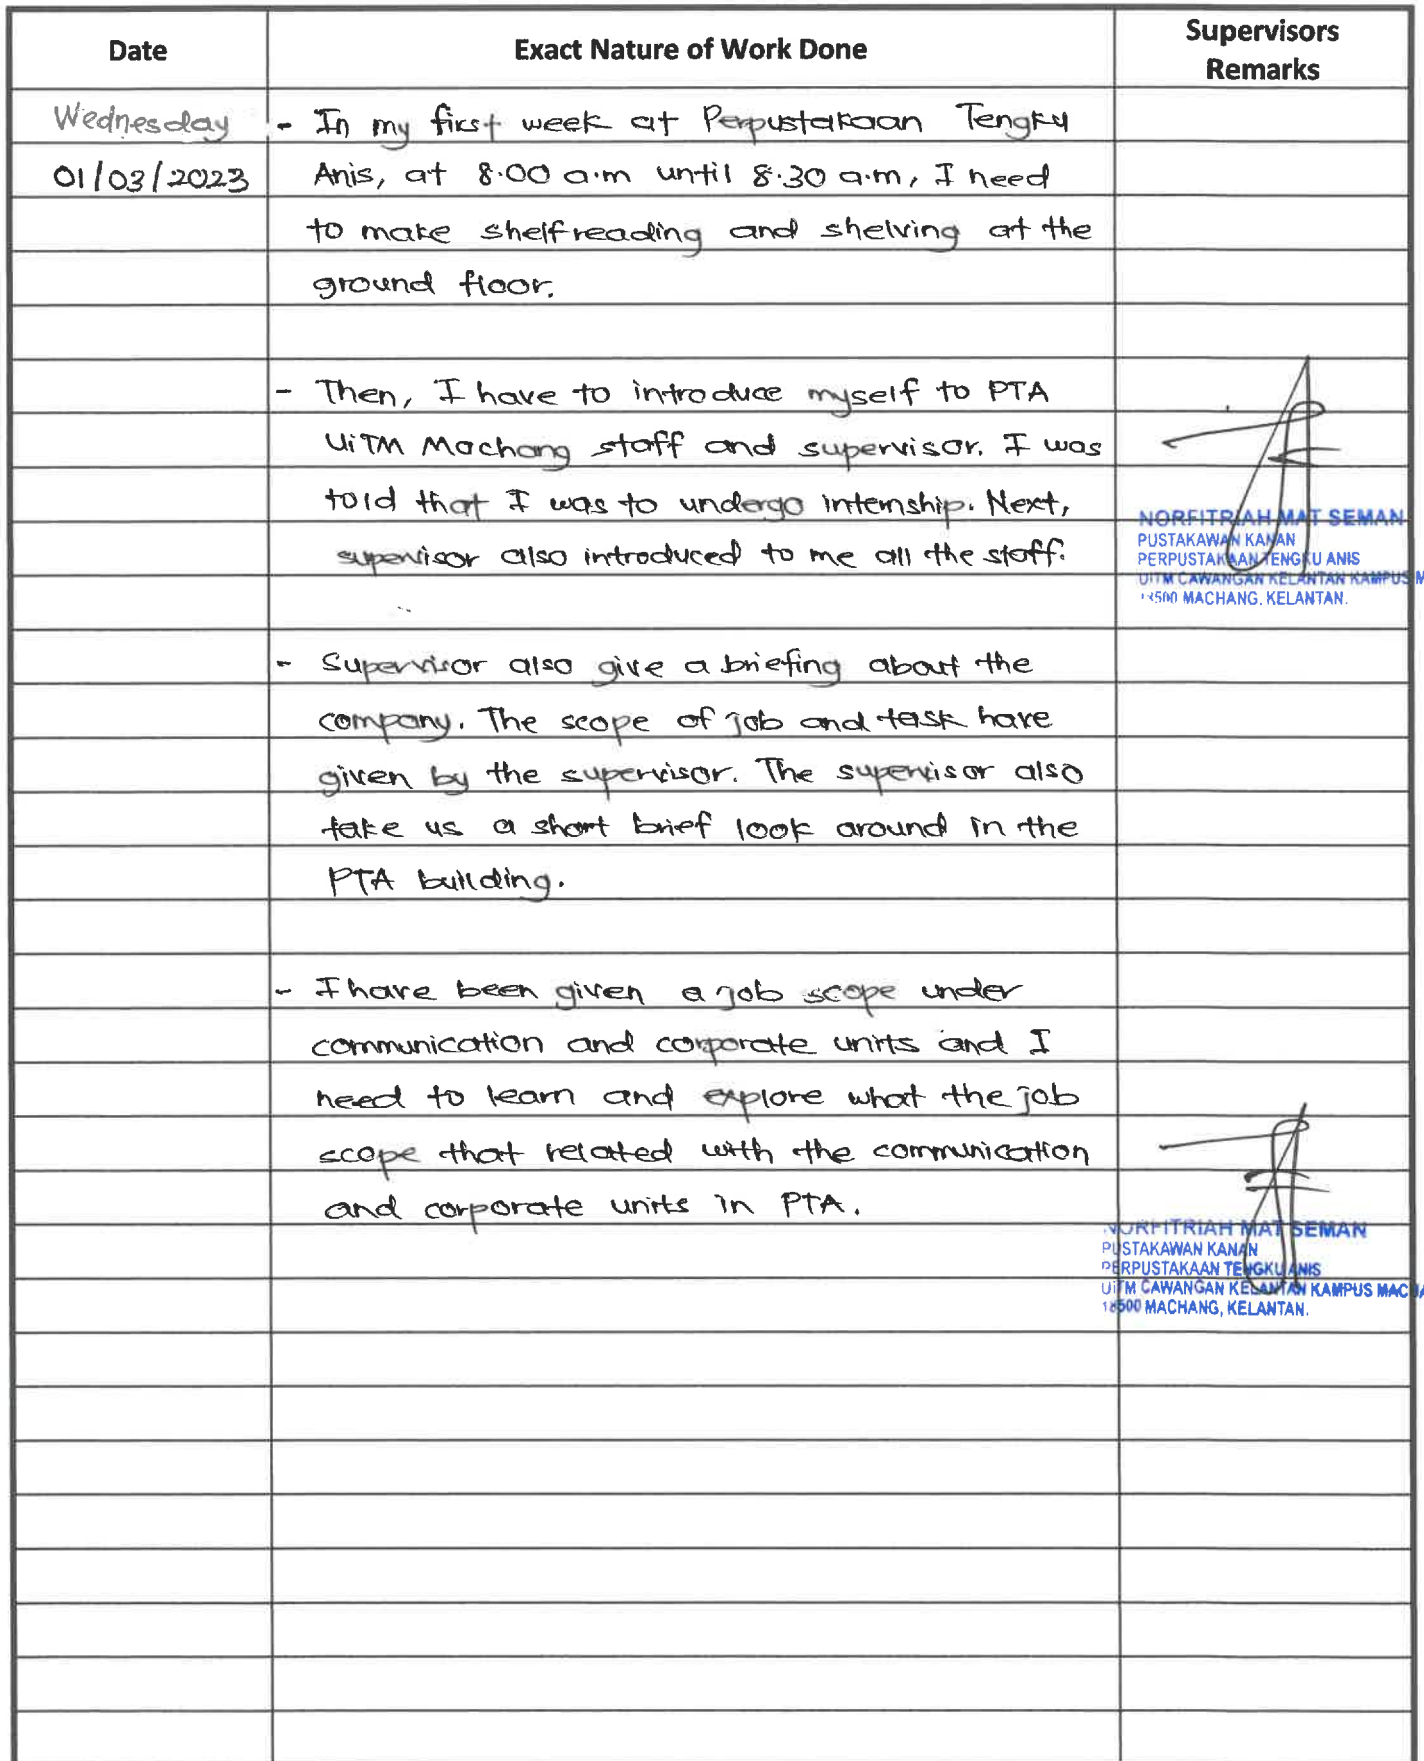 Date
Exact Nature of Work Done
Supervisors
Remarks
Wednesday
01/03/2023
- In my first week at Perpustakaan Tengku
Anis, at 8.00 a.m until 8.30 a.m, I need
to make shelfreading and shelving at the
ground floor.
- Then, I have to introduce myself to PTA
UiTM Machang staff and supervisor. I was
told that I was to undergo internship. Next,
supervisor also introduced to me all the staff.
NORFITRIAH MAT SEMAN
PUSTAKAWAN KANAN
PERPUSTAKAAN TENGKU ANIS
UITM CAWANGAN KELANTAN KAMPUS M
18500 MACHANG, KELANTAN.
- Supervisor also give a briefing about the
company. The scope of job and task have
given by the supervisor. The supervisor also
take us a short brief look around in the
PTA building.
- I have been given a job scope under
communication and corporate units and I
need to learn and explore what the job
scope that related with the communication
and corporate units in PTA.
NORFITRIAH MAT SEMAN
PUSTAKAWAN KANAN
PERPUSTAKAAN TENGKU ANIS
UiTM CAWANGAN KELANTAN KAMPUS MACHA
18500 MACHANG, KELANTAN.